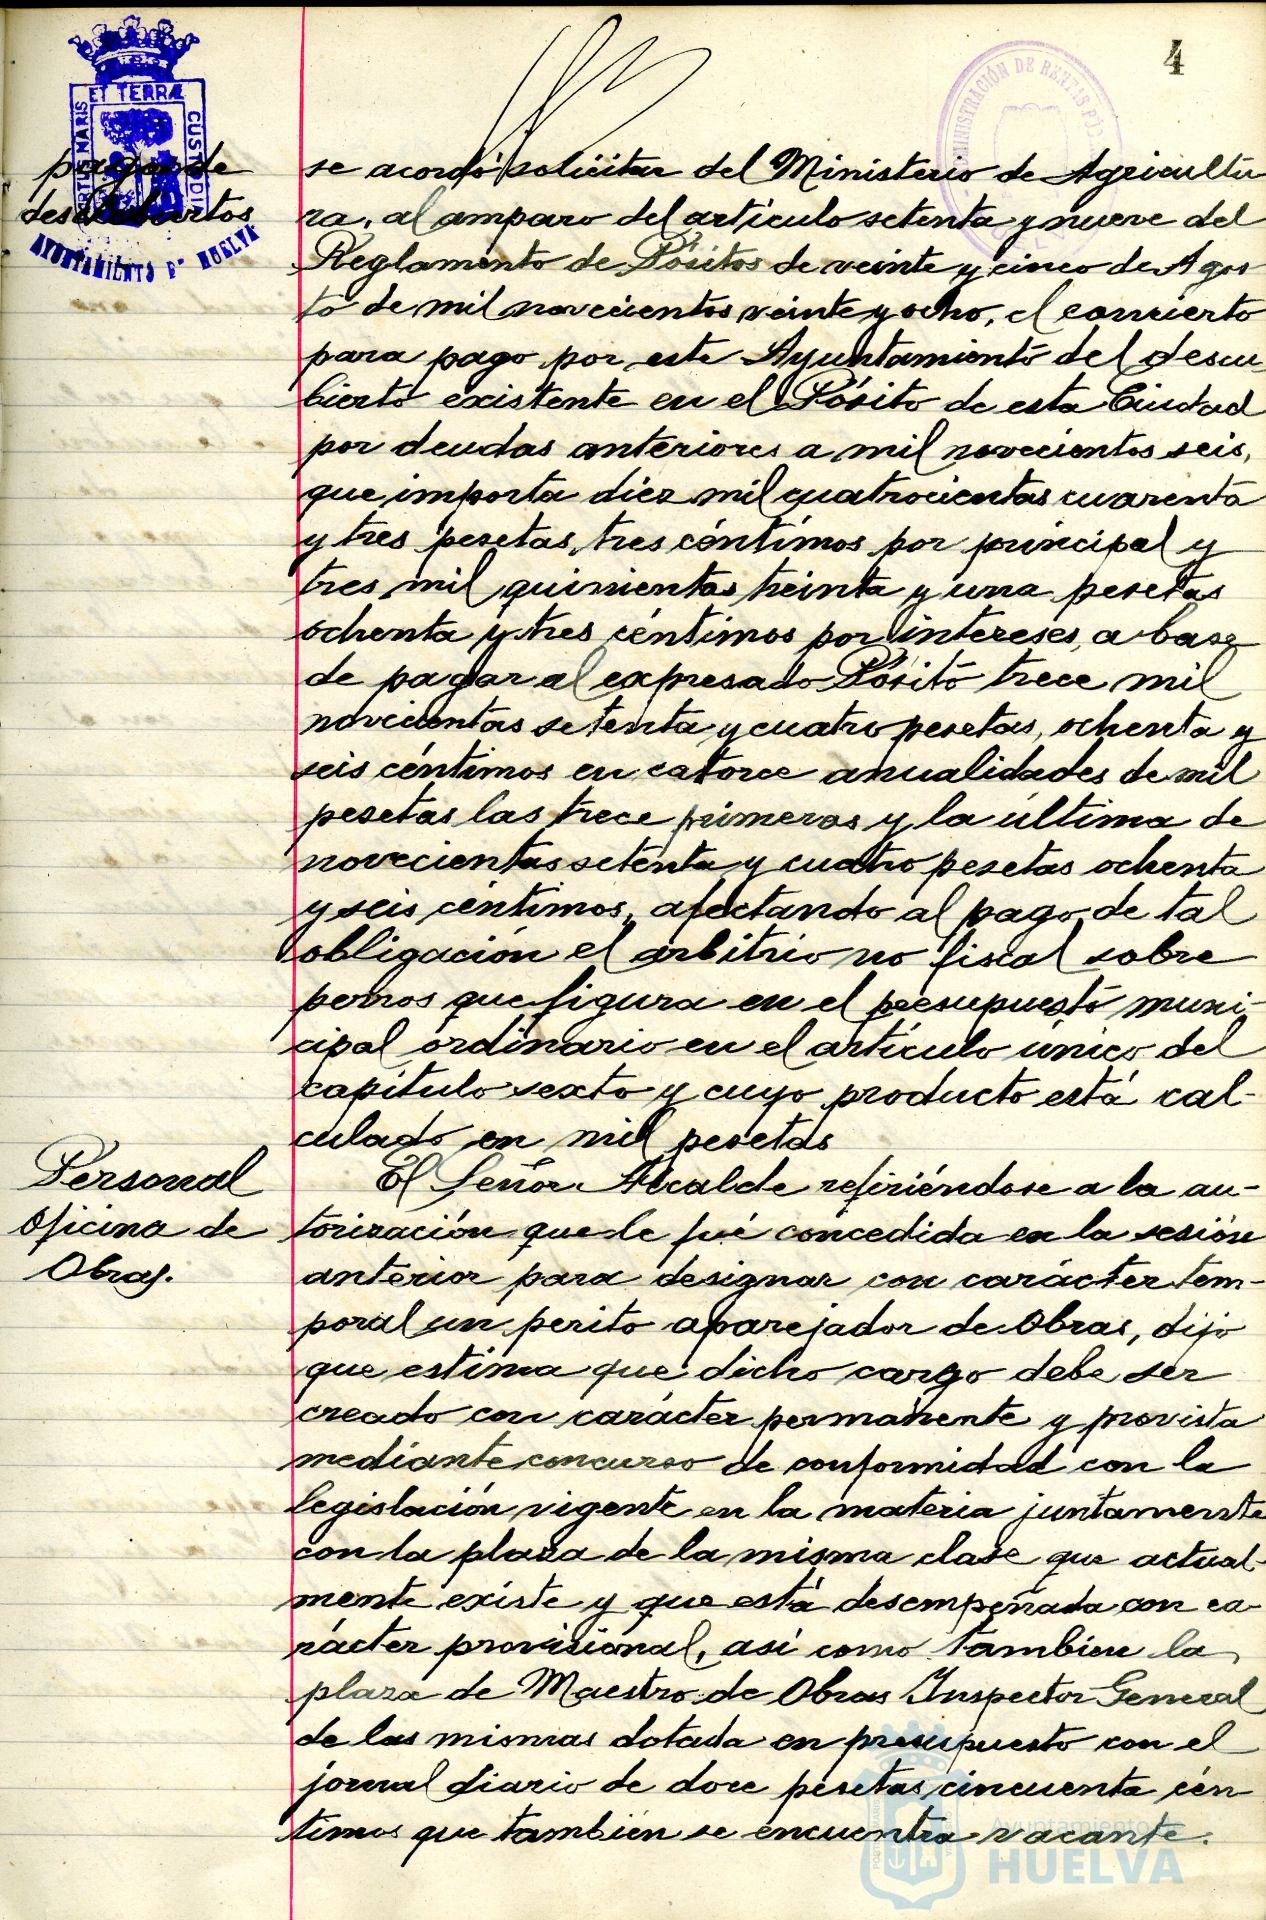 4
ET TERRÆ
PORTUS MARIS
CUSTODIA
AYUNTAMIENTO DE HUELVA
ADMINISTRACIÓN DE RENTAS PÚB
pago de
descubiertos
se acordó solicitar del Ministerio de Agricultu
ra, al amparo del artículo setenta y nueve del
Reglamento de Pósitos de veinte y cinco de Agos
to de mil novecientos veinte y ocho, el concierto
para pago por este Ayuntamiento del descu
bierto existente en el Pósito de esta Ciudad
por deudas anteriores a mil novecientos seis,
que importa diez mil cuatrocientas cuarenta
y tres pesetas, tres céntimos por principal y
tres mil quinientas treinta y una pesetas
ochenta y tres céntimos por intereses, a base
de pagar al expresado Pósito trece mil
novecientas setenta y cuatro pesetas, ochenta y
seis céntimos en catorce anualidades de mil
pesetas las trece primeras y la última de
novecientas setenta y cuatro pesetas ochenta
y seis céntimos, afectando al pago de tal
obligación el arbitrio no fiscal sobre
perros que figura en el presupuesto muni-
cipal ordinario en el artículo único del
capítulo sexto y cuyo producto está cal-
culado en mil pesetas
Personal
Oficina de
Obras.
El Señor Alcalde refiriéndose a la au-
torización que le fué concedida en la sesión
anterior para designar con carácter tem-
poral un perito aparejador de Obras, dijo
que estima que dicho cargo debe ser
creado con carácter permanente y provista
mediante concurso de conformidad con la
legislación vigente en la materia juntamente
con la plaza de la misma clase que actual-
mente existe y que está desempeñada con ca-
rácter provisional, así como tambien la
plaza de Maestro de Obras Inspector General
de las mismas dotada en presupuesto con el
jornal diario de doce pesetas cincuenta cén
timos que también se encuentra vacante.
Ayuntamiento de
HUELVA